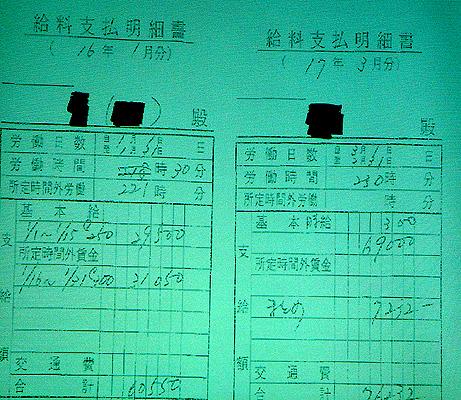 給料支払明細書
( 16年 1月分)
殿
労働日数 自 1月1日 至 1月31日 日
労働時間 時30分
所定時間外労働 221時 分
基本給
1/1~1/15 @250 29500
所定時間外賃金
1/16~1/31 @300 31050
支給額
交通費
合計 60550
給料支払明細書
( 17年 3月分)
殿
労働日数 自 3月1日 至 3月31日 日
労働時間 230時 分
所定時間外労働 時 分
基本時給 300
69000
所定時間外賃金
7232-
支給額
交通費
合計 76232